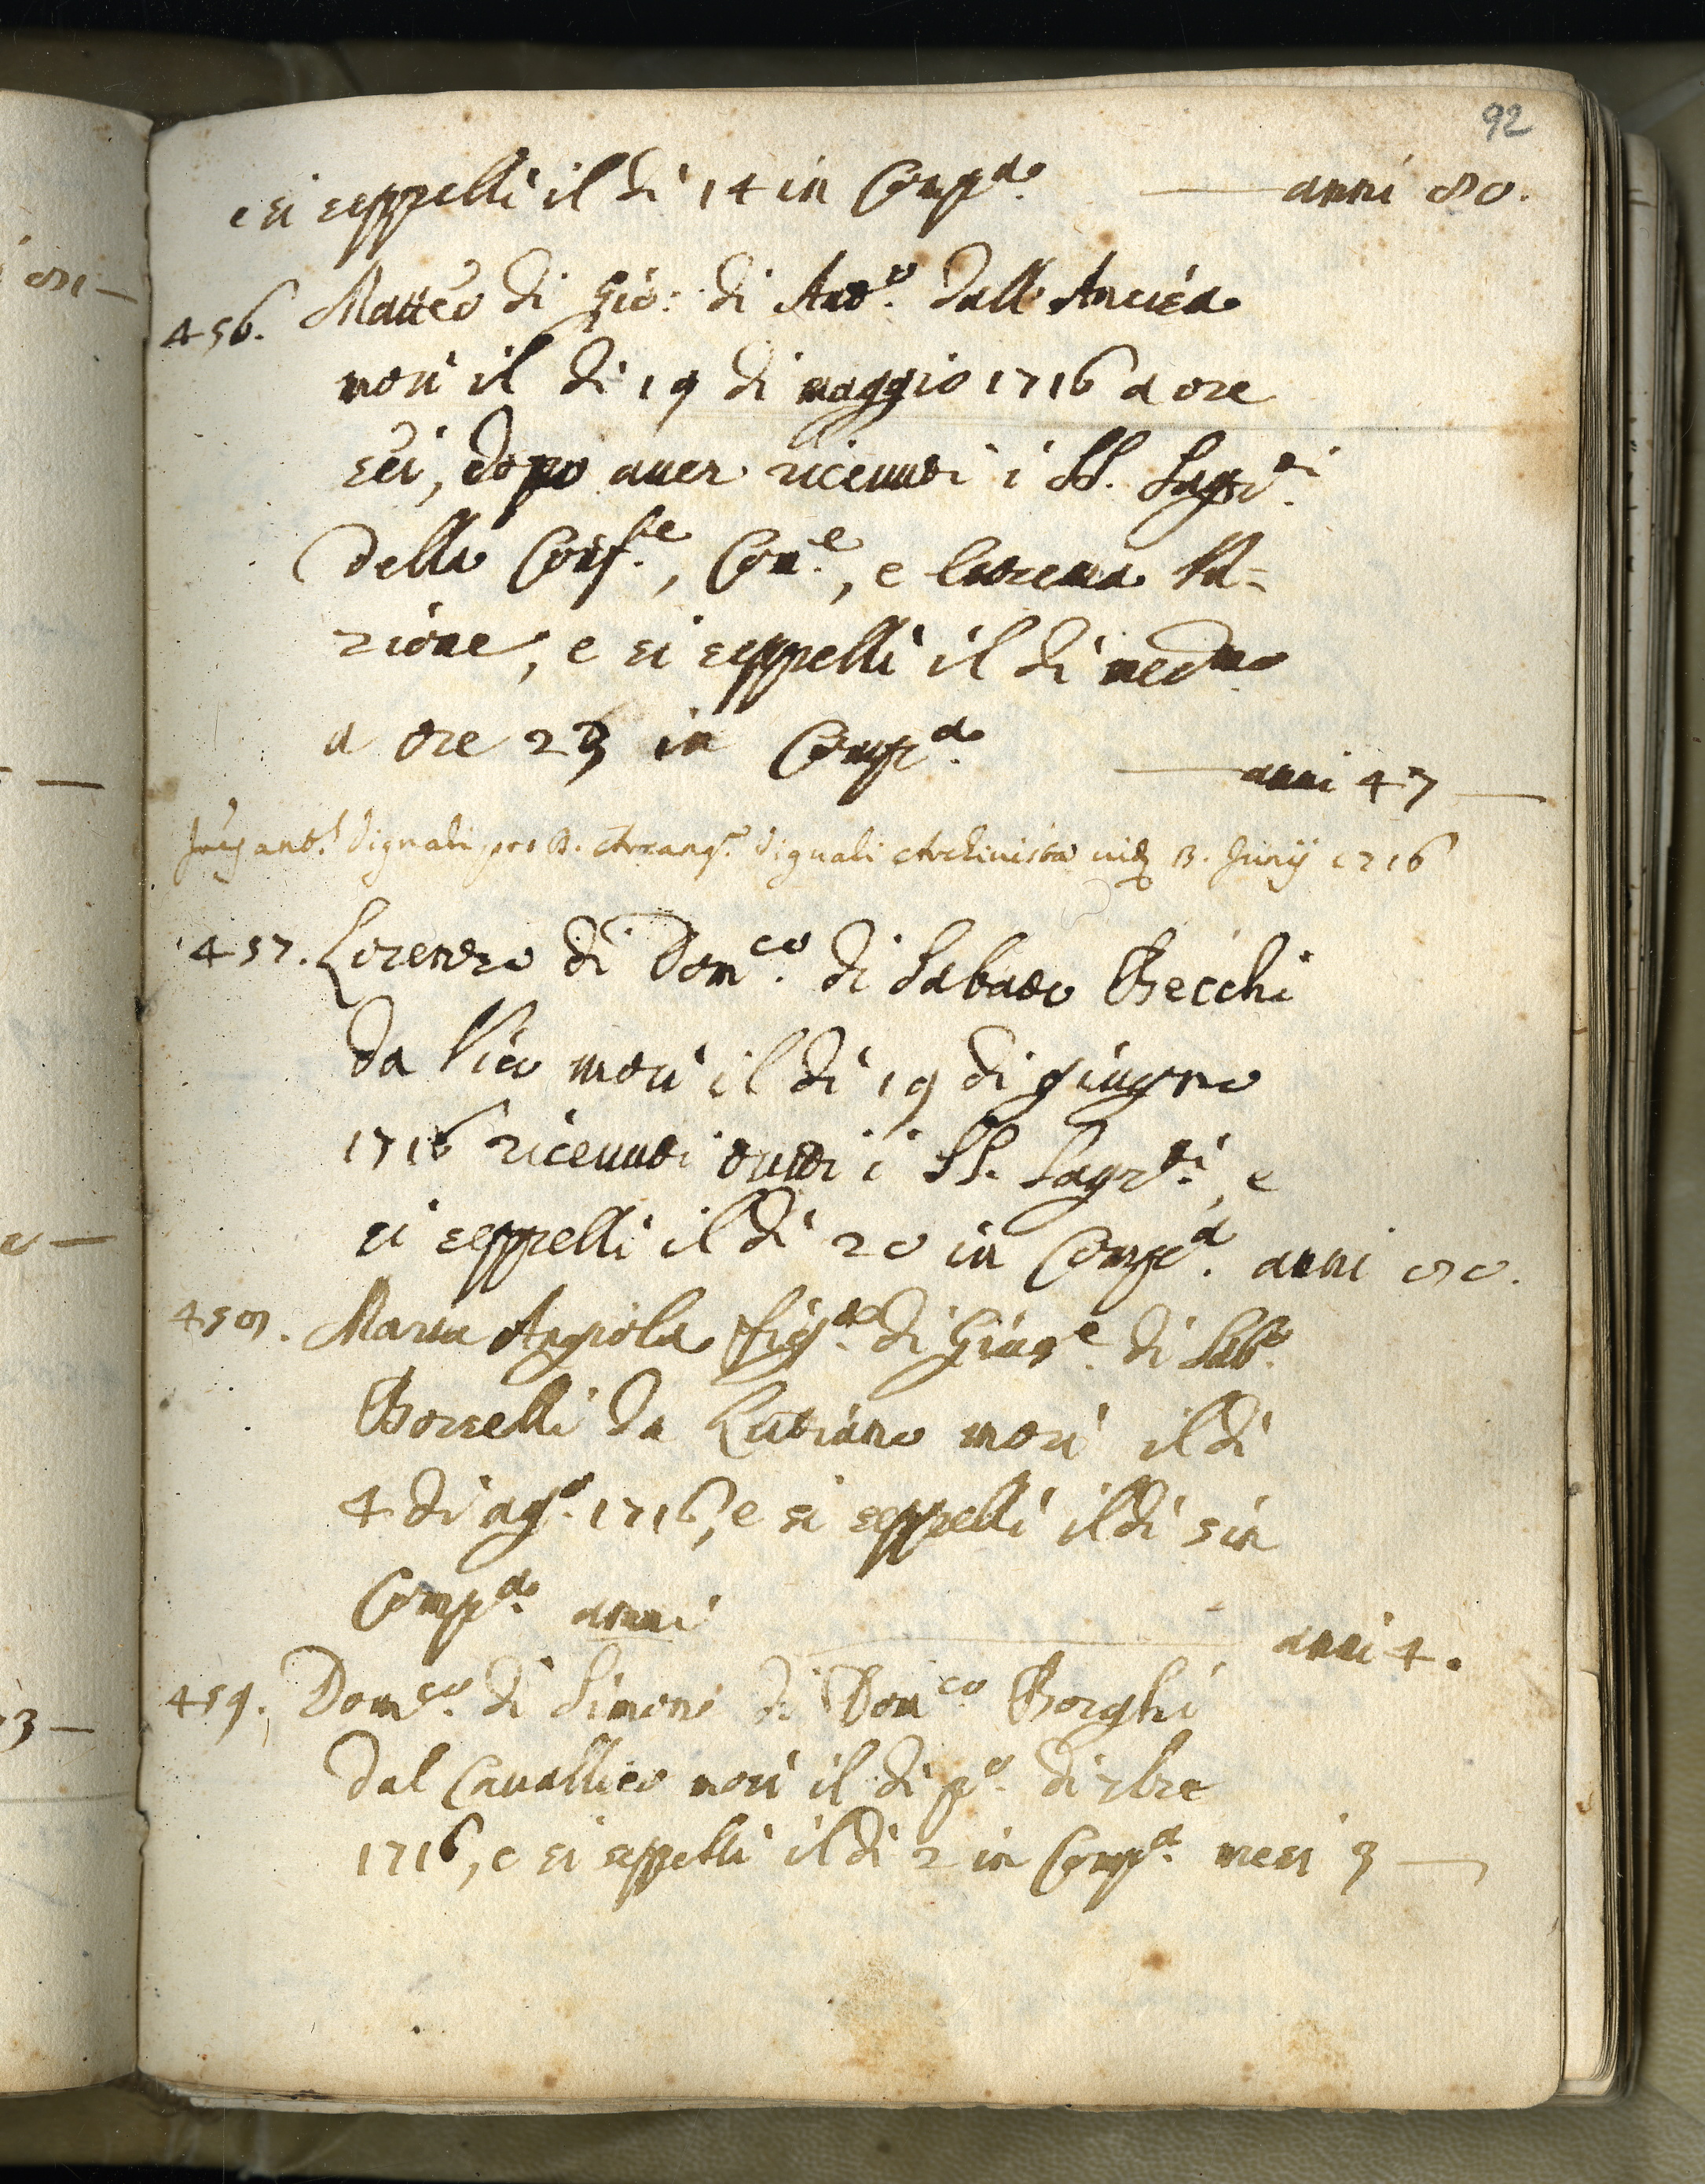 92
e si seppellì il dì 14 in Comp.a anni 80.
456. Matteo di Gio: di Ant.o dall'Ancisa
morì il dì 19 di maggio 1716 a ore
sei, dopo aver ricevuti i SS. Sagr.ti
della Conf.ne, Com.e, e Estrema Un=
zione, e si seppellì il dì med.mo
a ore 23 in Comp.a anni 47
Vignali pro D. Vignali Archivista 13. Junij 1716
457. Lorenzo di Dom.co di Sabato Becchi
da Vico morì il dì 19 di giugno
1716 ricevuti tutti i SS. Sagr.ti, e
si seppellì il dì 20 in Comp.a anni 80.
458. Maria Angiola fig.la di Gius.e di Sab.o
Borselli da Lutiano morì il dì
4 di ag.o 1716, e si seppellì il dì 5 in
Comp.a anni anni 4.
459. Dom.co di Simone di Dom.co Borghi
dal Cavallico morì il dì p.o di 7bre
1716, e si seppellì il dì 2 in Comp.a mesi 9